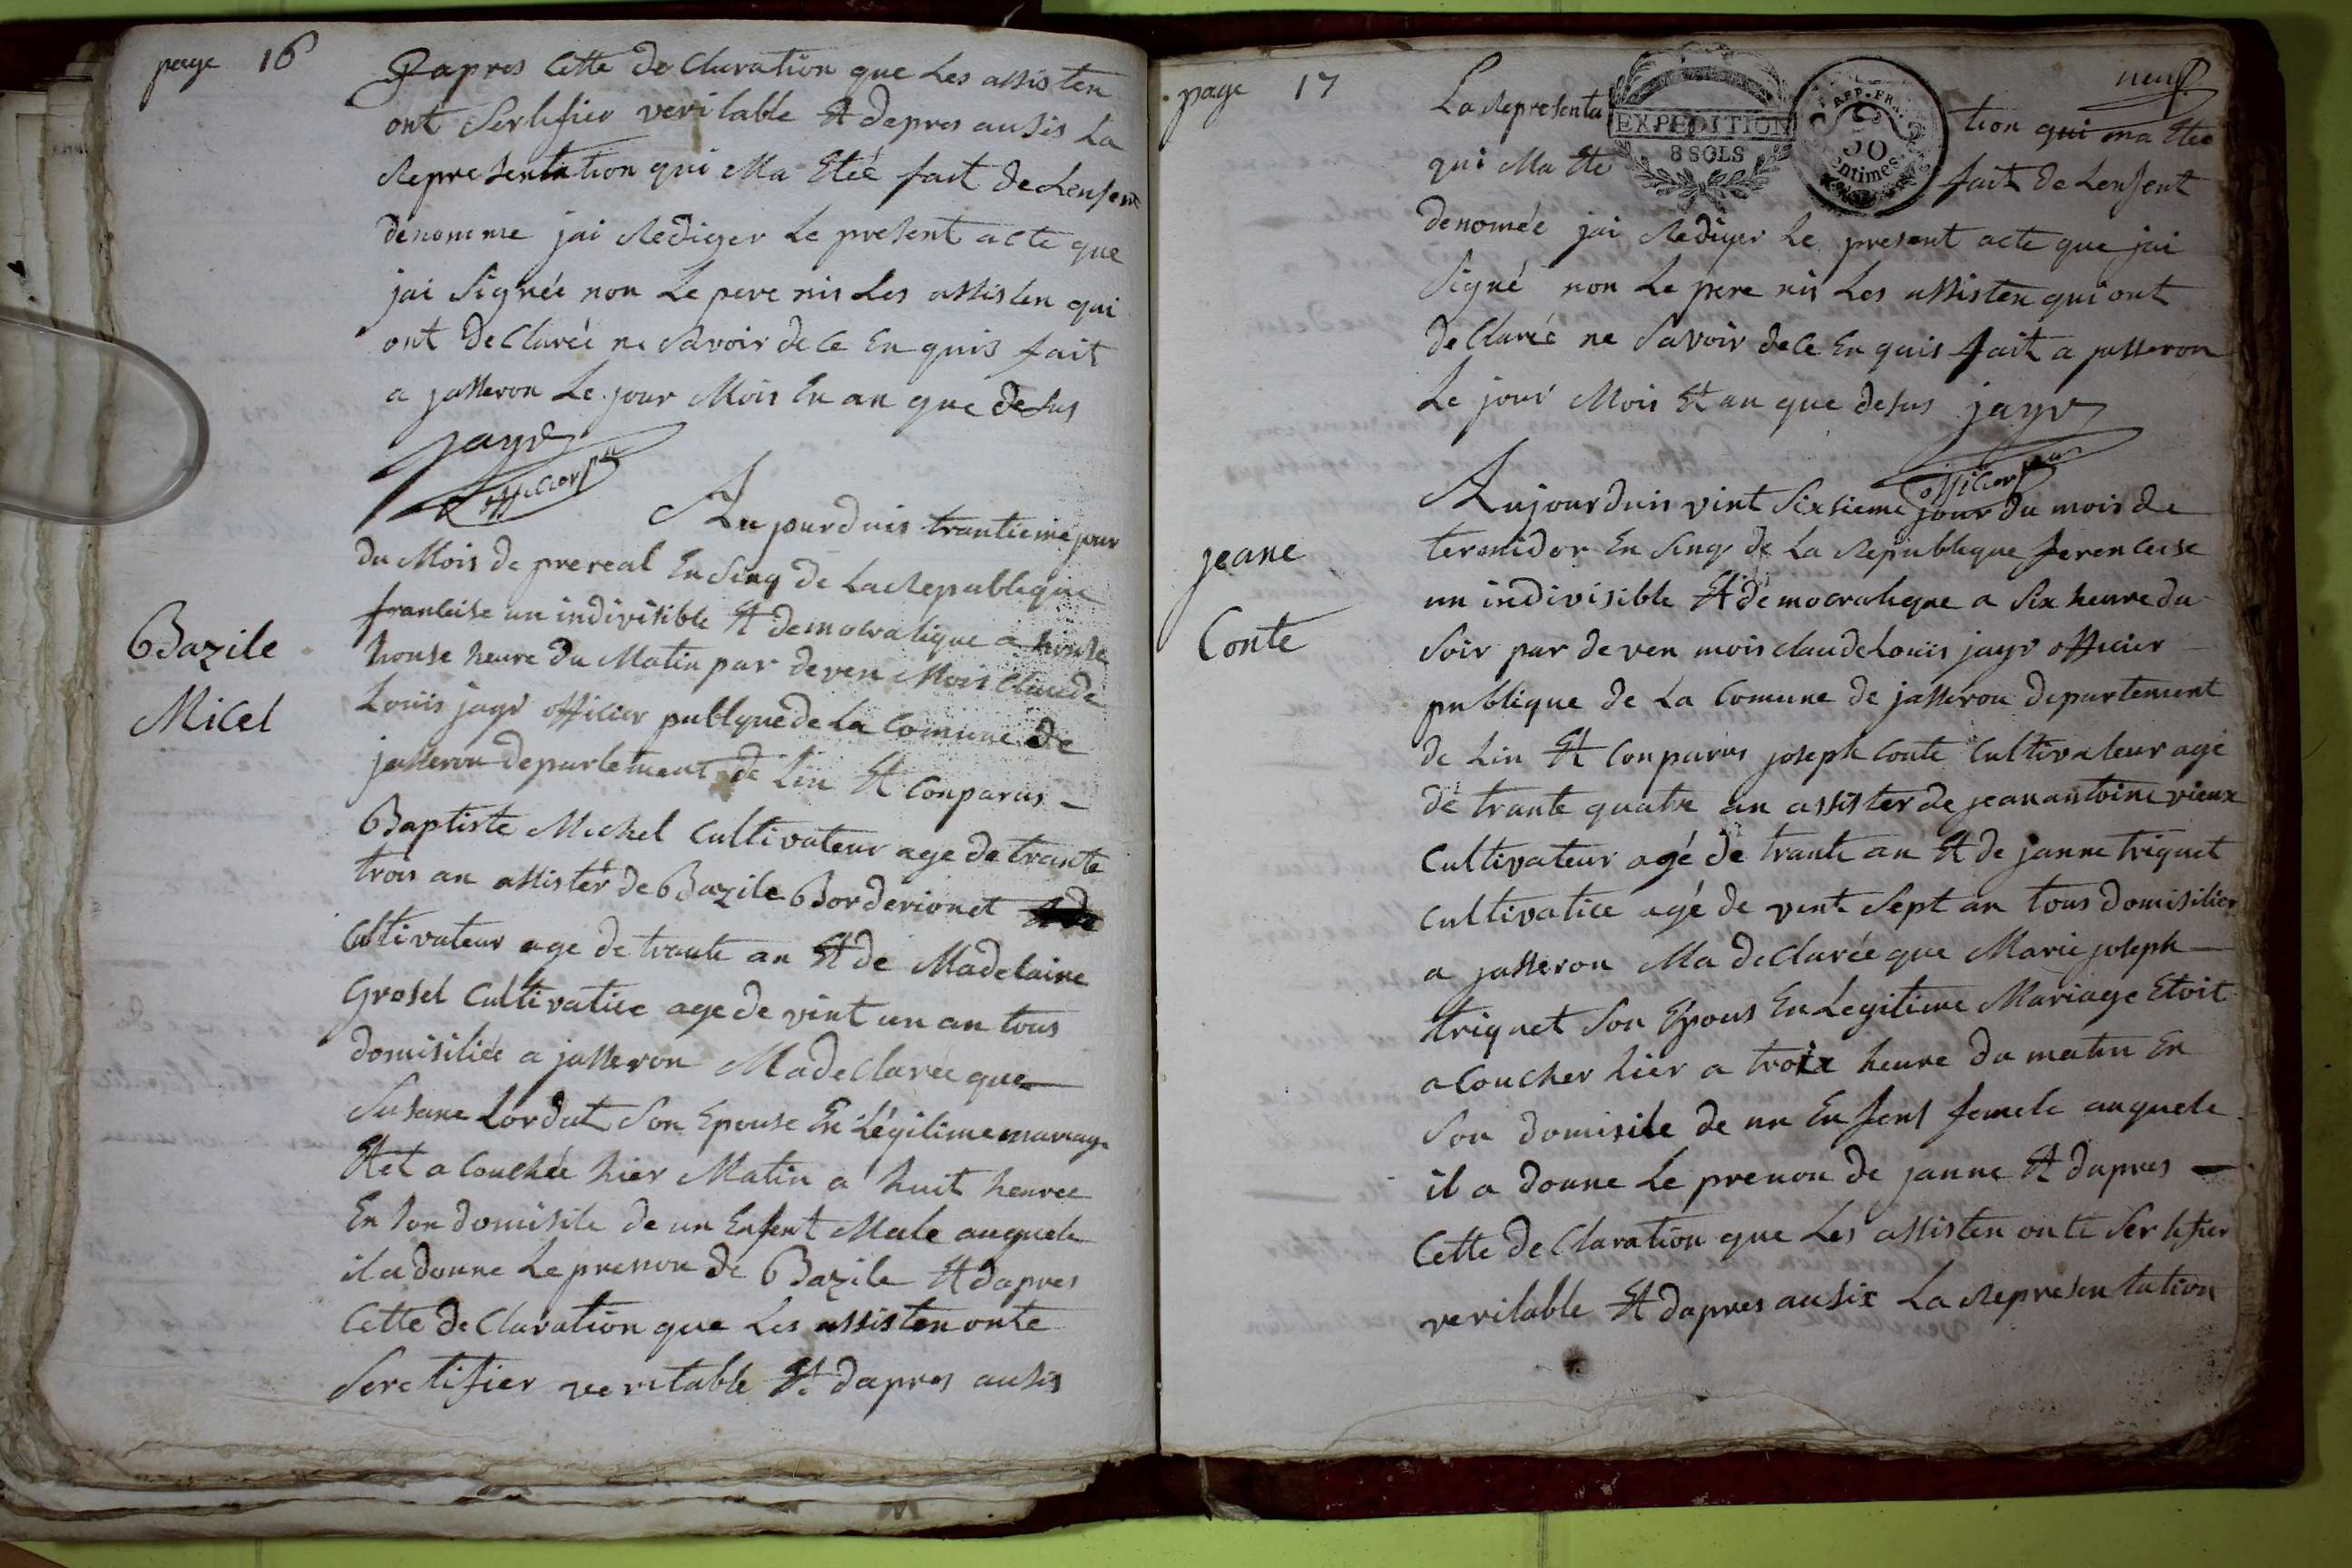 page 16
Dapres Cette de Claration que Les assisten
ont Sertifier veritable Et dapres ausis La
Representation qui Ma Eteé fait de Lenfent
denomme jai Rediger Le present acte que
jai Signée non Le pere nis Les assisten qui
ont de Clareé ne Savoir de Ce En quis fait
a jasseron Le jour Mois En an que desus
jayr
officier
Aujourduis trantieme jour
du Mois de prereal En Sinq de La Republique
franceise un indivisible Et democratique a honse
honse heure du Matin par deven Mois Claude
Louis jayr officier publque de La Comune de
jasseron departement de Lin Et Conparus
Baptiste Michel Cultivateur age de trante
trois an assister de Bazile Borderionet
Bazile
Micel
Cultivateur age de trante an Et de Madelaine
Grosel Cultivatice age de vint un an tous
domisiliée a jasseron Ma de Clarée que
Susane Lordat Son Epouse En Légitime mariage
Etet a Couchée hier Matin a huit heuree
En Son domisile de un Enfent Male auquele
il a donne Le prenon de Bazile Et dapres
Cette de Claration que Les assisten onte
Serctifier veritable Et dapres ausis
page 17
neuf
La Representa
EXPEDITION
8 SOLS
REP. FRA.
50
centimes
tion qui ma Etee
qui Ma Ete
fait de Lenfent
denomée jai Rédiger Le present acte que jai
Signé non Le pere nis Les assisten qui ont
de Clareé ne Savoir de Ce En quis fait a jasseron
Le jour Mois Et an que desus jayr
officier
Aujourduis vint Sixsieme jour du mois de
termidor En Sinq de La Republique ferenceise
un indivisible Et démocratique a Six heure du
Soir par de ven mois claude Louis jayr officier
publique de La Comune de jasseron departement
de Lin Et Conparus joseph Conte Cultivateur agé
de trante quatre an assister de jean antoine vieux
Cultivateur agé de trante an Et de janne triquet
Cultivatice agé de vint Sept an tous domisilier
a jasseron Ma de Clarée que Marie joseph
triquet Son Epous En Legitime Mariage Etoit
a Coucher hier a troix heure du matin En
Son domisile de un Enfent femele auquele
il a donne Le prenon de janne Et dapres
Cette de Claration que Les assisten onte Sertifier
veritable Et dapres ausix La Representation
jeane
Conte